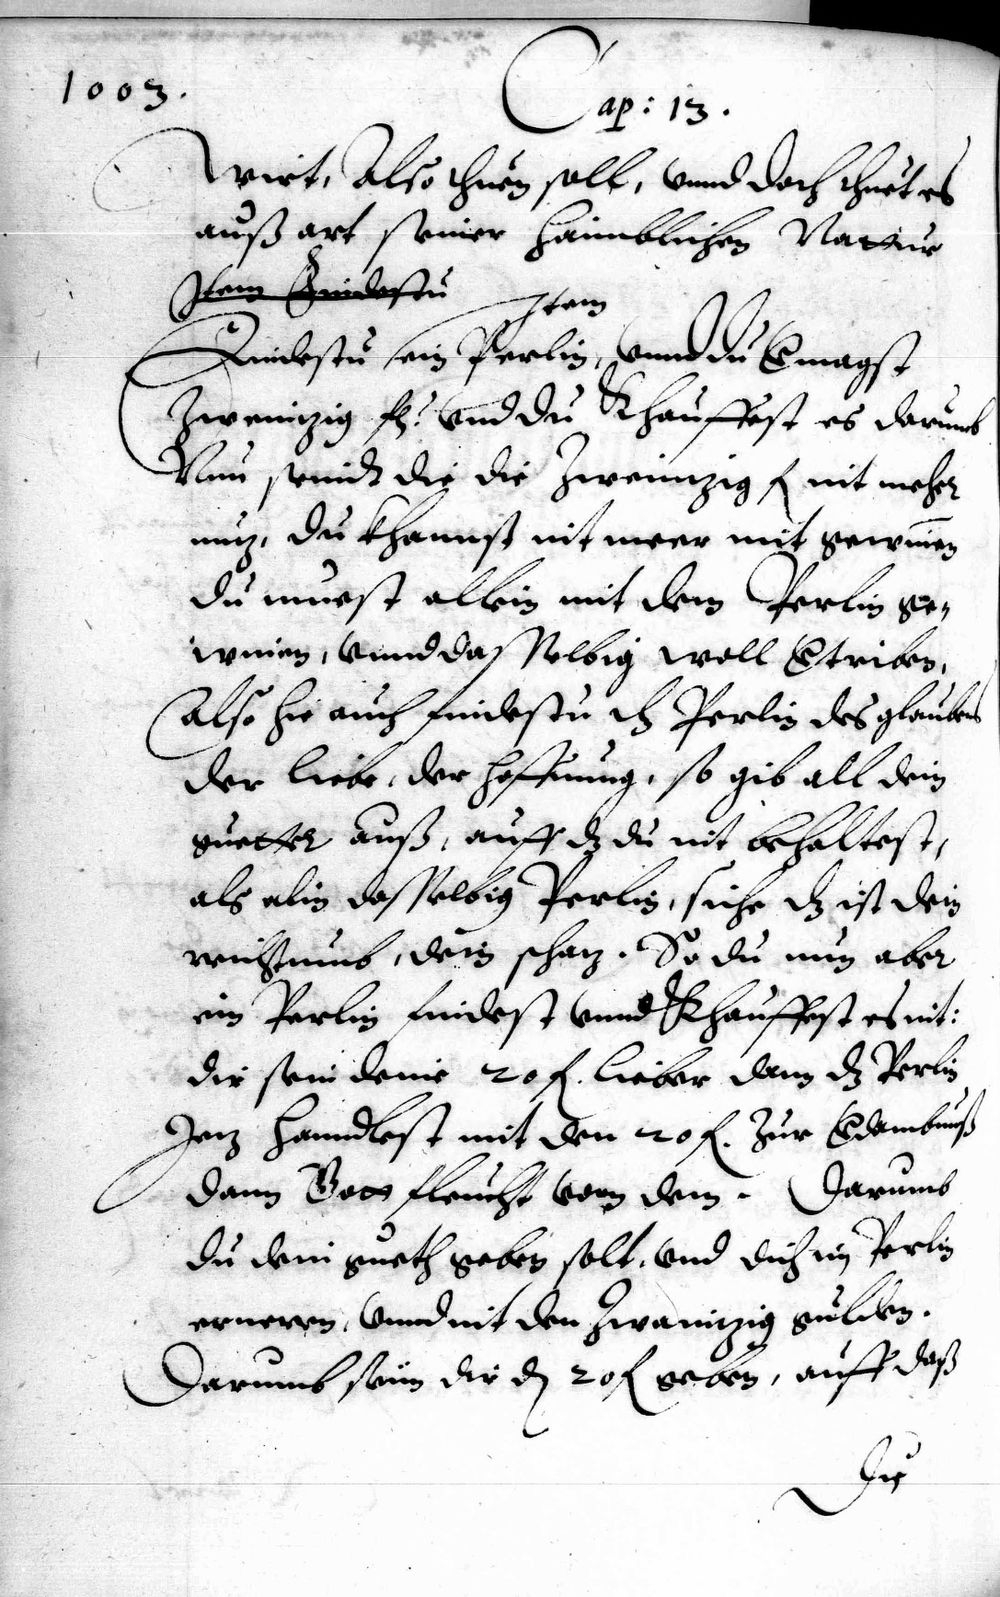 1003.
Cap: 13.
wirt, Also thuen soll, vnnd doch thuet es
auß art seiner haimblichen Nattur
Item Findestu
Item
Findestu ein Perlin, vnnd du Emagst
Zweintzig fl: vnd du Khauffest es darumb
Nun seindt dir die Zweintzig f nit meher
nutz, du khannst nit meer mit gewinen
du muest allein mit dem Perlin ge,,
winen, vnnd dasselbig woll Etriben,
Also hie auch findestu dz Perlin des glaubens
der liebe, der hoffnung, so gib all dein
guetter auß, auff dz du nit behaltest,
als alin dasselbig Perlin, siehe dz ist dein
reichtumb, dein schatz. So du nun aber
ein Perlin findest vnnd Khauffest es nit:
dir sein deine 20 f. lieber dann dz Perlin
Jetz handlest mit den 20 f. Zur Edambnuß
dann Gott fleucht von dem. Darumb
du dein gueth geben solt, vnd dich im Perlin
erneren, vnnd nit den Zwaintzig gulden.
Darumb sein dir die 20 f geben, auff daß
Du